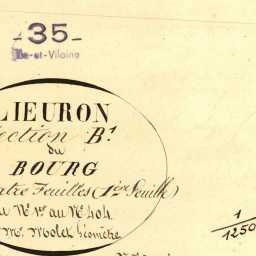 -35-
Ille-et-Vilaine
LIEURON
ection B¹
du
BOURG
atre Feuilles (1ère Feuille)
Nº 1er au Nº 404
Mr. Molet Géomètre
1
1250